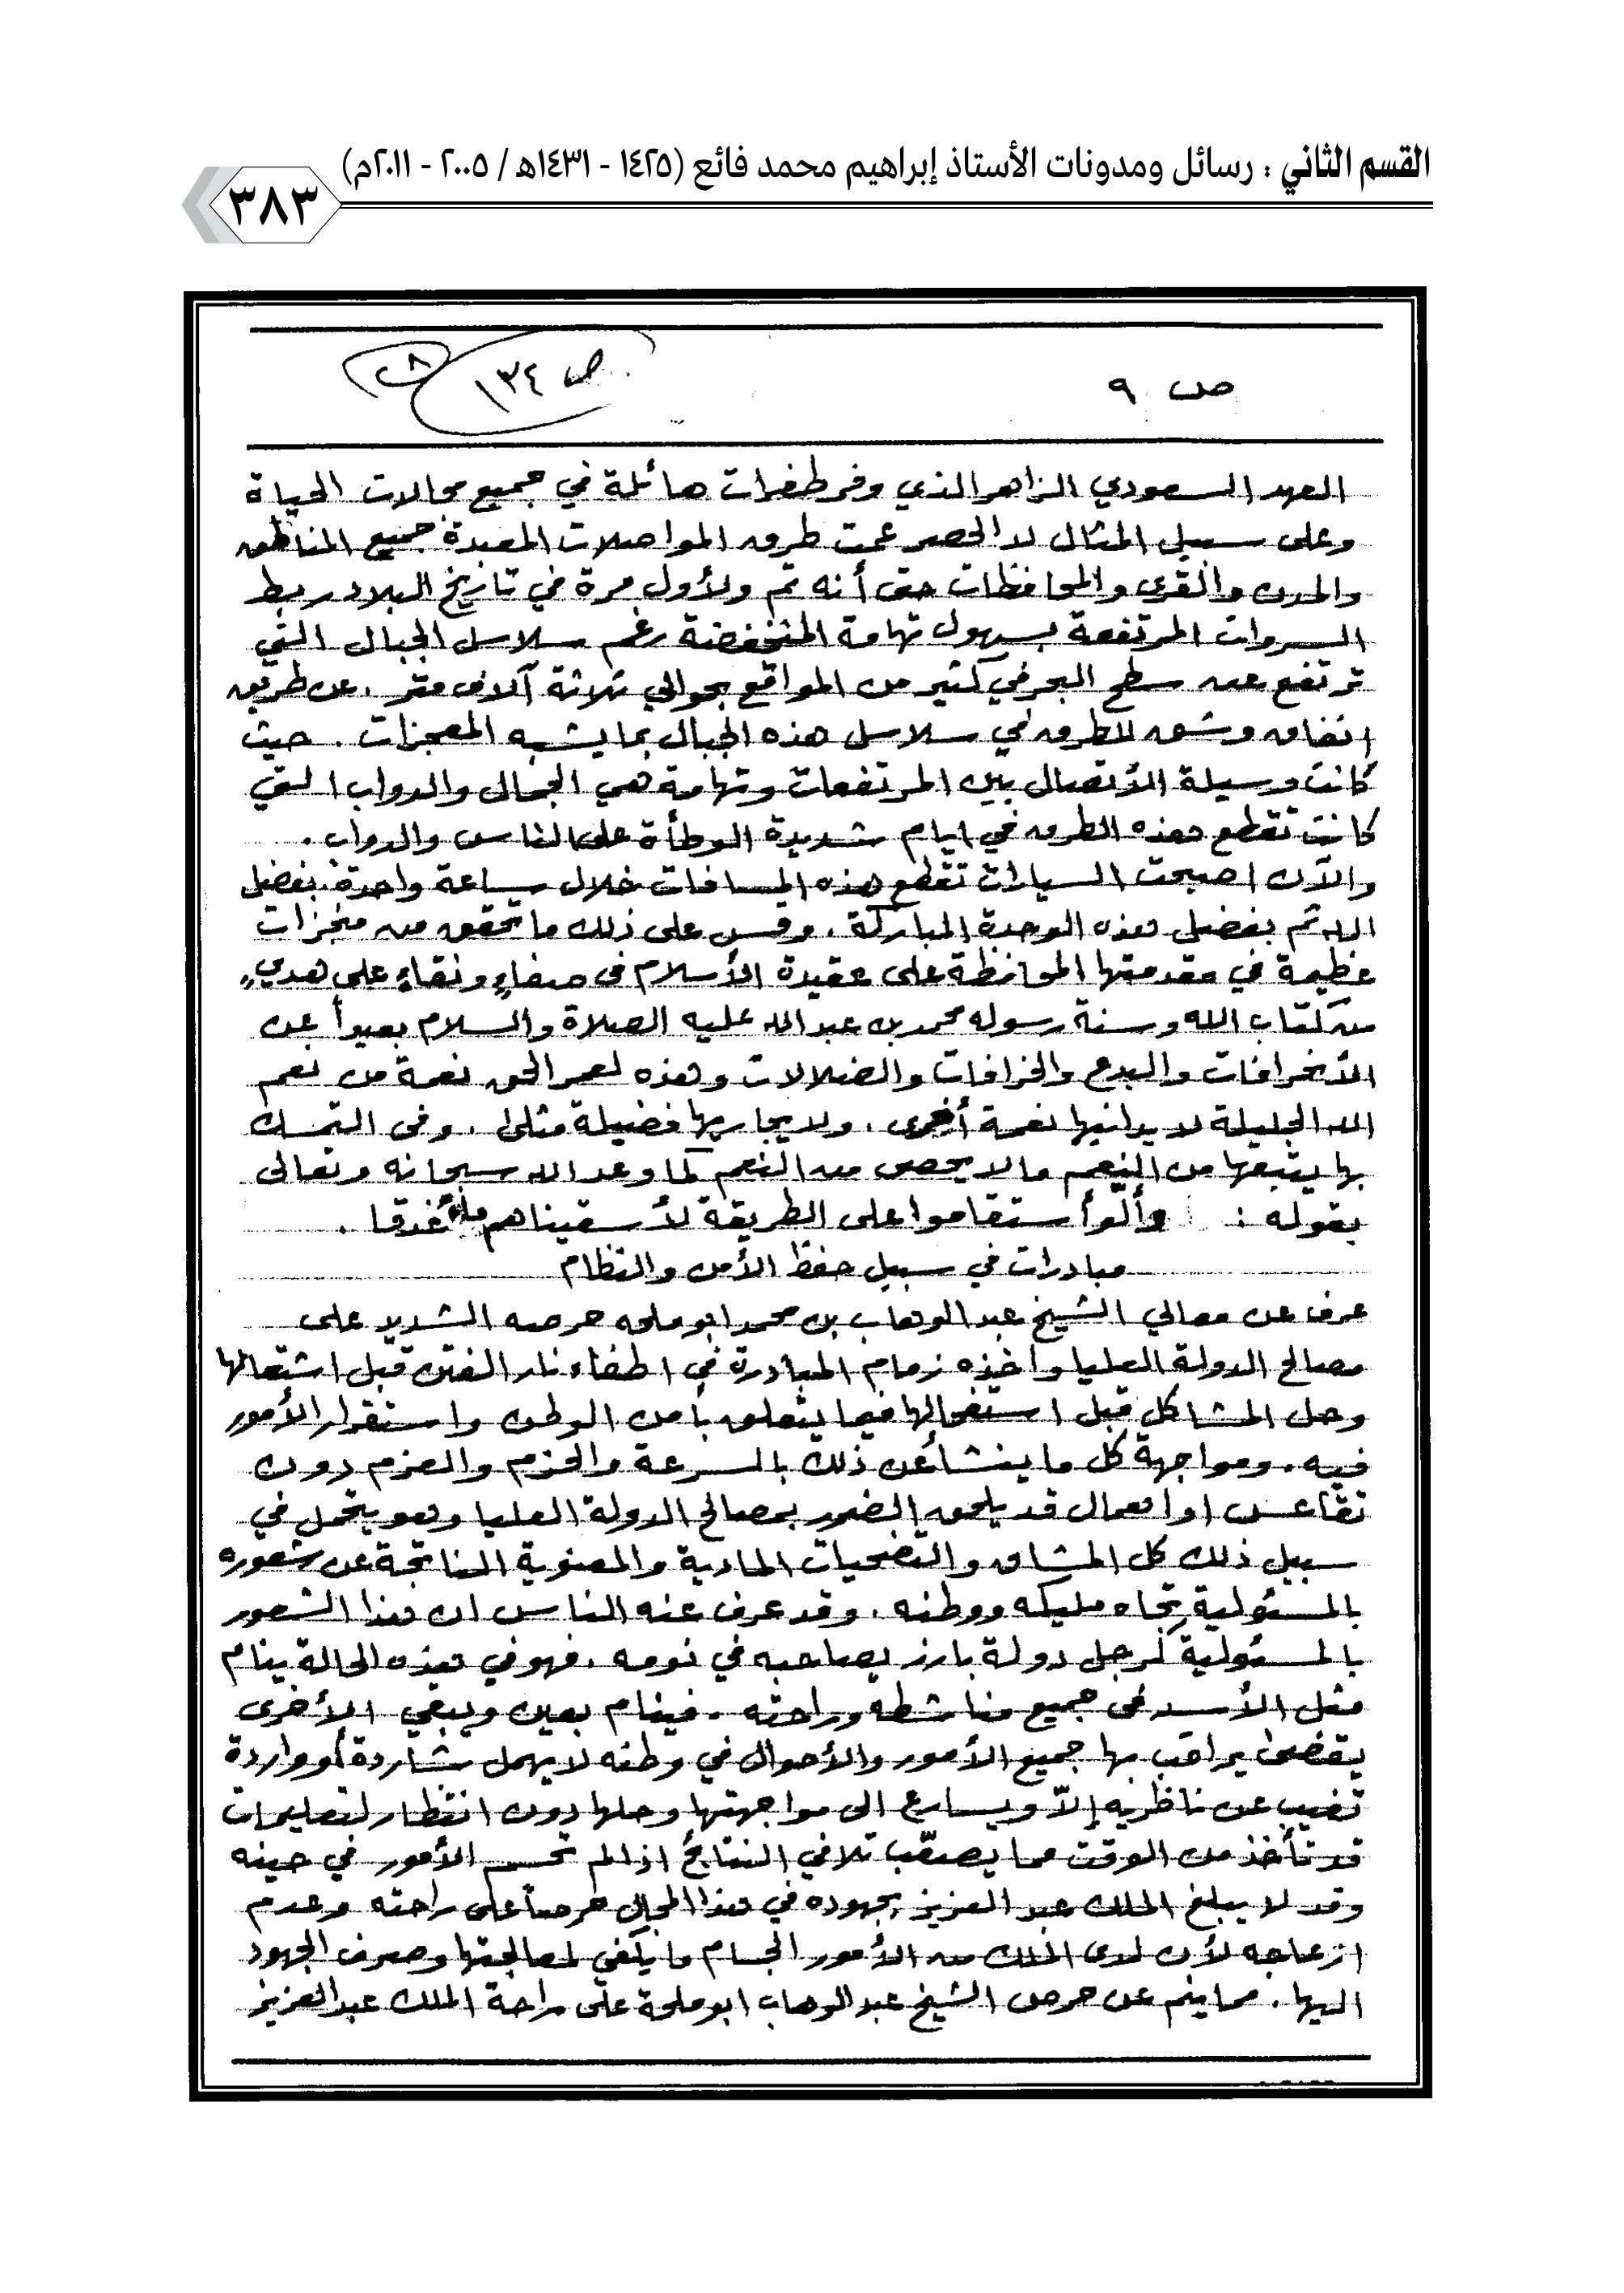 القسم الثاني : رسائل ومدونات الأستاذ إبراهيم محمد فائع (١٤٢٥ - ١٤٣١هـ / ٢٠٠٥ - ٢٠١١م)
٣٨٣
ص ٩ ص ١٣٤ ٨
العهد السعودي الزاهر الذي وفر طفرات هائلة في جميع مجالات الحياة
وعلى سبيل المثال لا الحصر عمت طرق المواصلات المعبدة جميع المناطق
والمدن والقرى والمحافظات حتى أنه تم ولأول مرة في تاريخ البلاد ربط
السروات المرتفعة بسهول تهامة المنخفضة رغم سلاسل الجبال التي
ترتفع عن سطح البحر في كثير من المواقع بحوالي ثلاثة آلاف متر . عن طريق
انفاق وشق للطرق في سلاسل هذه الجبال بما يشبه المعجزات . حيث
كانت وسيلة الأتصال بين المرتفعات وتهامة هي الجمال والدواب التي
كانت تقطع هذه الطرق في ايام شديدة الوطأة على الناس والدواب .
والآن اصبحت السيارات تقطع هذه المسافات خلال ساعة واحدة بفضل
الله ثم بفضل هذه الوحدة المباركة . وقس على ذلك ما تحقق من منجزات
عظيمة في مقدمتها المحافظة على عقيدة الأسلام في صفاءٍ ونقاءٍ على هديٍ
من كتاب الله وسنة رسوله محمد بن عبد الله عليه الصلاة والسلام بعيداً عن
الأنحرافات والبدع والخرافات والضلالات وهذه لعمر الحق نعمة من نعم
الله الجليلة لا يدانيها نعمة أخرى . ولا يجاريها فضيلة مثلى . وفي التمسك
بها يتبعها من النعم مالا يحصى من النعم كما وعد الله سبحانه وتعالى
بقوله : وألّوأستقاموا على الطريقة لأسقيناهم ماءً غدقا .
مبادرات في سبيل حفظ الأمن والنظام
عرف عن معالي الشيخ عبد الوهاب بن محمد ابو ملحه حرصه الشديد على
مصالح الدولة العليا وأخذه زمام المبادرة في اطفاء نار الفتن قبل اشتعالها
وحل المشاكل قبل استفحالها فيما يتعلق بأمن الوطن واستقرار الأمور
فيه . ومواجهة كل ما ينشأ عن ذلك بالسرعة والحزم والعزم دون
تقاعس او أهمال قد يلحق الضرر بمصالح الدولة العليا وهو يتحمل في
سبيل ذلك كل المشاق والتضحيات المادية والمعنوية الناتجة عن شعوره
بالمسئولية تجاه مليكه ووطنه . وقد عرف عنه الناس ان هذا الشعور
بالمسئولية كرجل دولة بارز يصاحبه في نومه . فهو في هذه الحالة ينام
مثل الأسد في جميع مناشطه وراحته . فينام بعين ويبقي الأخرى
يقضى يراقب بها جميع الأمور والأحوال في وطنه لا يهمل شاردة أو واردة
تغيب عن ناظريه إلاّ ويسارع الى مواجهتها وحلها دون انتظار لتعليمات
قد تأخذ من الوقت مما يصعّب تلافي النتائج اذا لم تحسم الأمور في حينه
وقد لا يبلغ الملك عبد العزيز بجهوده في هذا المجال حرصاً على راحته وعدم
ازعاجه لأن لدى الملك من الأمور الجسام ما يكفي لمعالجتها وصرف الجهود
اليها . مما ينم عن حرص الشيخ عبد الوهاب ابو ملحة على راحة الملك عبد العزيز